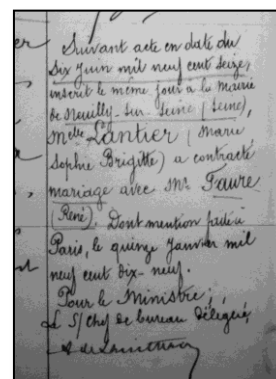 Suivant acte en date du
six juin mil neuf cent seize,
inscrit le même jour à la Mairie
de Neuilly-sur-Seine (Seine),
Melle Lantier (Marie
Sophie Brigitte) a contracté
mariage avec Mr Faure
(René). Dont mention faite à
Paris, le quinze Janvier mil
neuf cent dix-neuf.
Pour le Ministre;
Le S/Chef de bureau délégué,